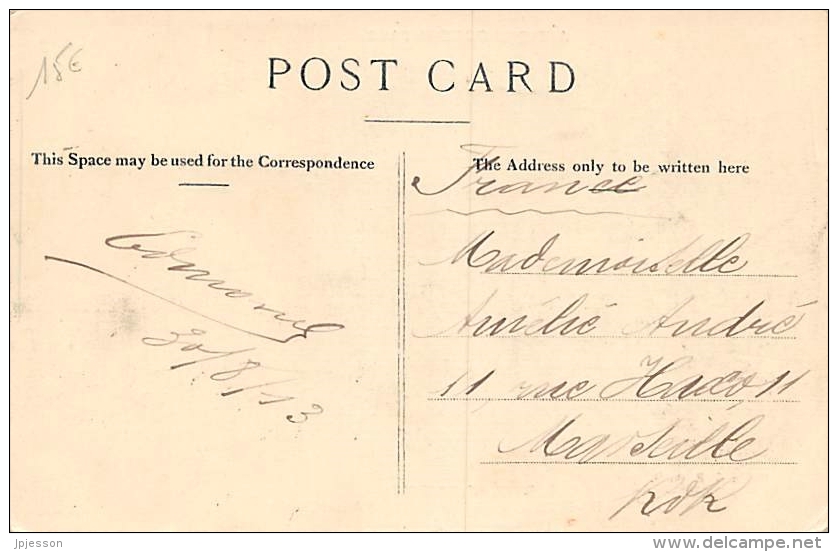 15€
POST CARD
This Space may be used for the Correspondence
The Address only to be written here
Edmond
30/8/13
France
Mademoiselle
Amélie André
11, rue Haxo, 11
Marseille
jpjesson
www.delcampe.net